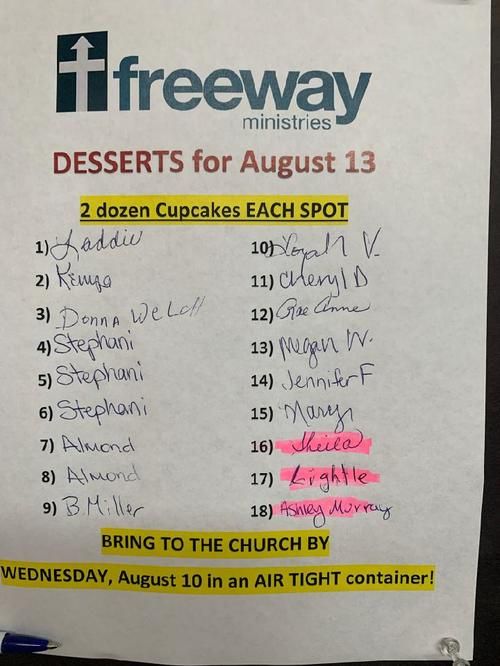 freeway
ministries
DESSERTS for August 13
2 dozen Cupcakes EACH SPOT
1) Laddie
2) Kenya
3) Donna Welch
4) Stephani
5) Stephani
6) Stephani
7) Almond
8) Almond
9) B. Miller
10) V.
11) Cheryl D
12) Rae Anne
13) Megan W.
14) Jennifer F
15) Mary
16) Sheila
17) Lightle
18) Ashley Murray
BRING TO THE CHURCH BY
WEDNESDAY, August 10 in an AIR TIGHT container!